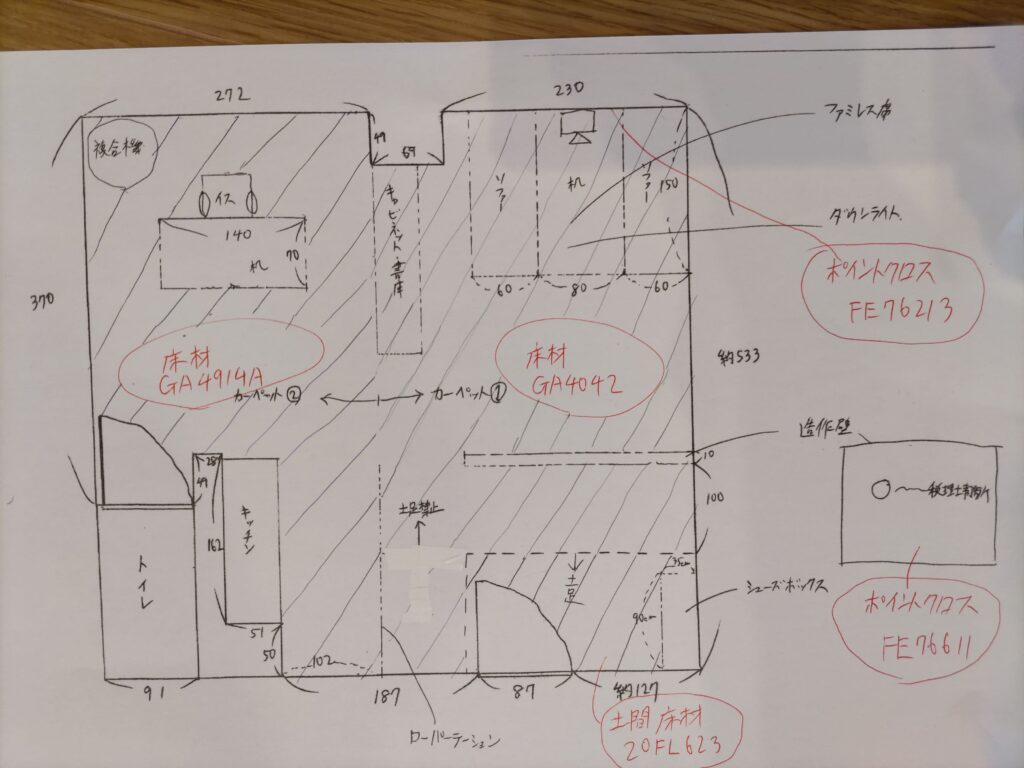 272
230
ファミレス席
複合機
49
69
イス
140
70
机
キャビネット・書庫
ソファー
机
ソファー
150
60
80
60
ダウンライト
ポイントクロス
FE76213
370
床材
GA4914A
カーペット②
カーペット①
床材
GA4042
約533
造作壁
10
100
28
49
162
キッチン
トイレ
土足禁止
土足
35cm
90cm
シューズボックス
ポイントクロス
FE76611
51
50
102
91
187
87
約127
ローパーテーション
土間床材
20FL623